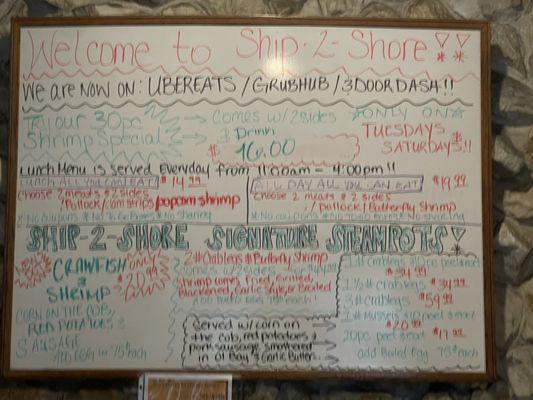 Welcome to Ship-2-Shore!!
We are NOW ON: UBEREATS / GRUBHUB / DOORDASH!!
Try our 30pc
Shrimp Special
Comes w/ 2 sides
& Drink
$ 16.00
☆ONLY ON☆
TUESDAYS &
SATURDAYS!!
Lunch Menu is served Everyday from 11:00am - 4:00pm!!
LUNCH ALL YOU CAN EAT! $14.99
choose 2 meats & 2 sides
/Pollock/Clam Strips/popcorn shrimp
* No Coupons * No To Go Boxes * No Sharing
ALL DAY ALL YOU CAN EAT! $19.99
choose 2 meats & 2 sides
/Pollock/Butterfly Shrimp
* No Coupons * No To Go Boxes * No Sharing
SHIP-2-SHORE SIGNATURE STEAMPOTS!
CRAWFISH
&
SHRIMP
ONLY
CORN ON THE COB,
RED POTATOES &
SAUSAGE
Add Egg for 75¢ each
2# Crablegs & Butterfly Shrimp
comes w/ 2 sides
Shrimp comes Fried, Grilled,
Blackened, Garlic Style, or Broiled
Served w/ corn on
the cob, red potatoes &
pork sausage smothered
in Ol Bay & Garlic Butter.
1# crablegs & 10pc peel & eat
1 ½# crablegs $34.99
3# crablegs $59.99
1# Mussels & 10pc peel & eat
20pc peel & eat $17.99
add Boiled Egg 75¢ each